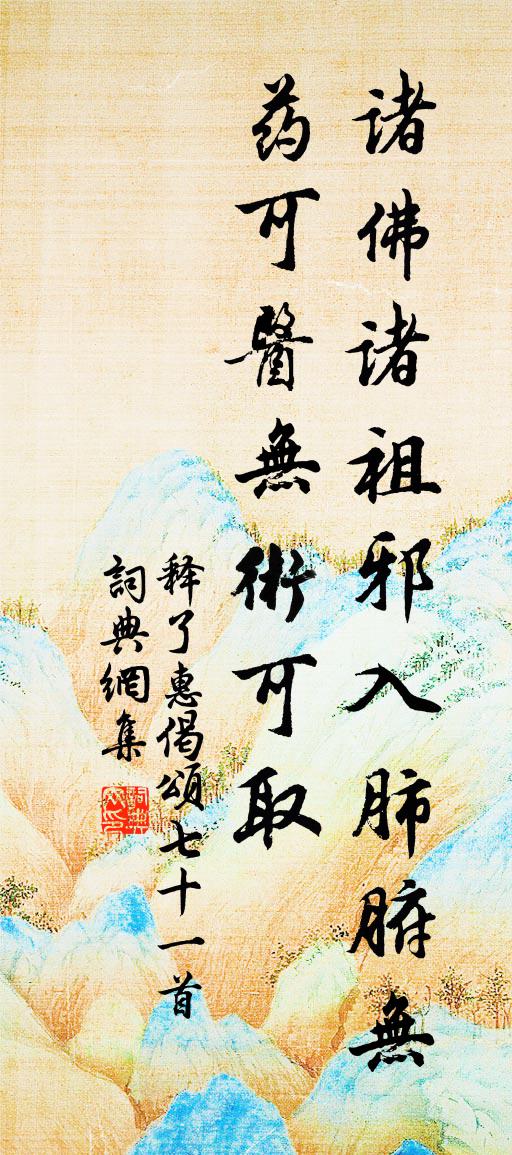 诸佛诸祖邪入肺腑無
药可醫無術可取
释了惠偈頌七十一首
詞典網集